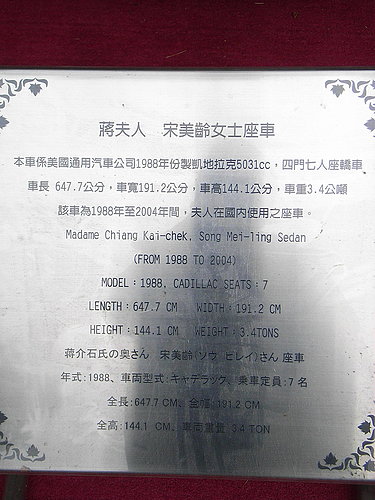 蔣夫人 宋美齡女士座車
本車係美國通用汽車公司1988年份製凱地拉克5031cc，四門七人座轎車
車長 647.7公分，車寬191.2公分，車高144.1公分，車重3.4公噸
該車為1988年至2004年間，夫人在國內使用之座車。
Madame Chiang Kai-chek, Song Mei-ling Sedan
(FROM 1988 TO 2004)
MODEL：1988, CADILLAC SEATS：7
LENGTH：647.7 CM WIDTH：191.2 CM
HEIGHT：144.1 CM WEIGHT：3.4TONS
蒋介石氏の奥さん 宋美齡(ソウ ビレイ)さん 座車
年式:1988、車両型式:キャデラック、乗車定員:7 名
全長:647.7 CM、全幅:191.2 CM
全高:144.1 CM、車両重量:3.4 TON